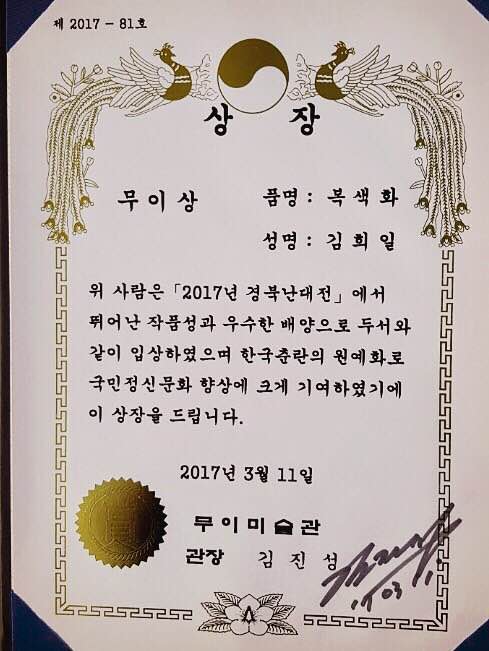 제 2017 - 81호
상 장
무이상 품명 : 복색화
성명 : 김희일
위 사람은 「2017년 경북난대전」에서
뛰어난 작품성과 우수한 배양으로 두서와
같이 입상하였으며 한국춘란의 원예화로
국민정신문화 향상에 크게 기여하였기에
이 상장을 드립니다.
2017년 3월 11일
무이미술관
관장 김진성